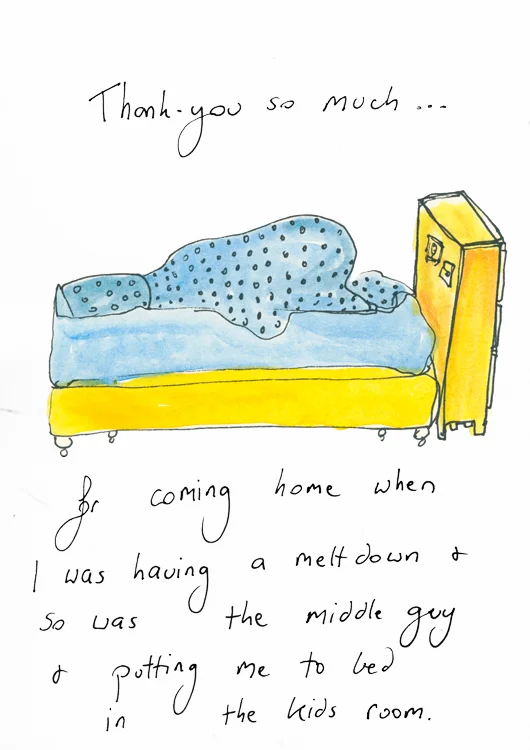 Thank-you so much...
for coming home when
I was having a meltdown &
so was the middle guy
& putting me to bed
in the kids room.